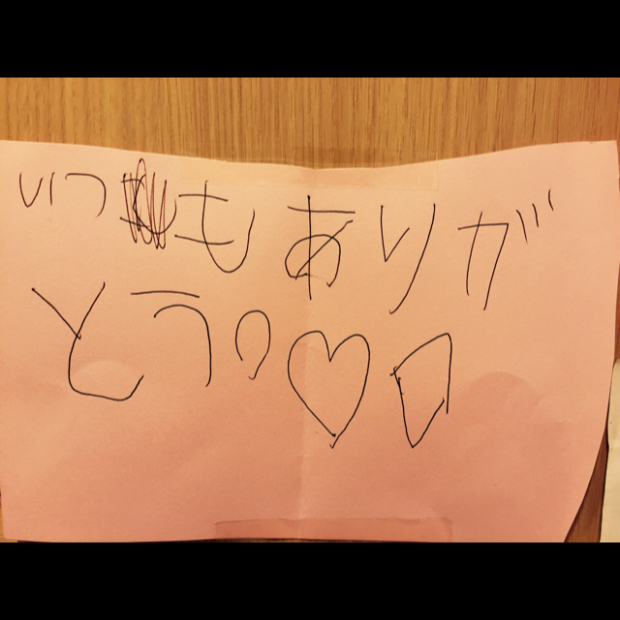 いつもありが
とう♡